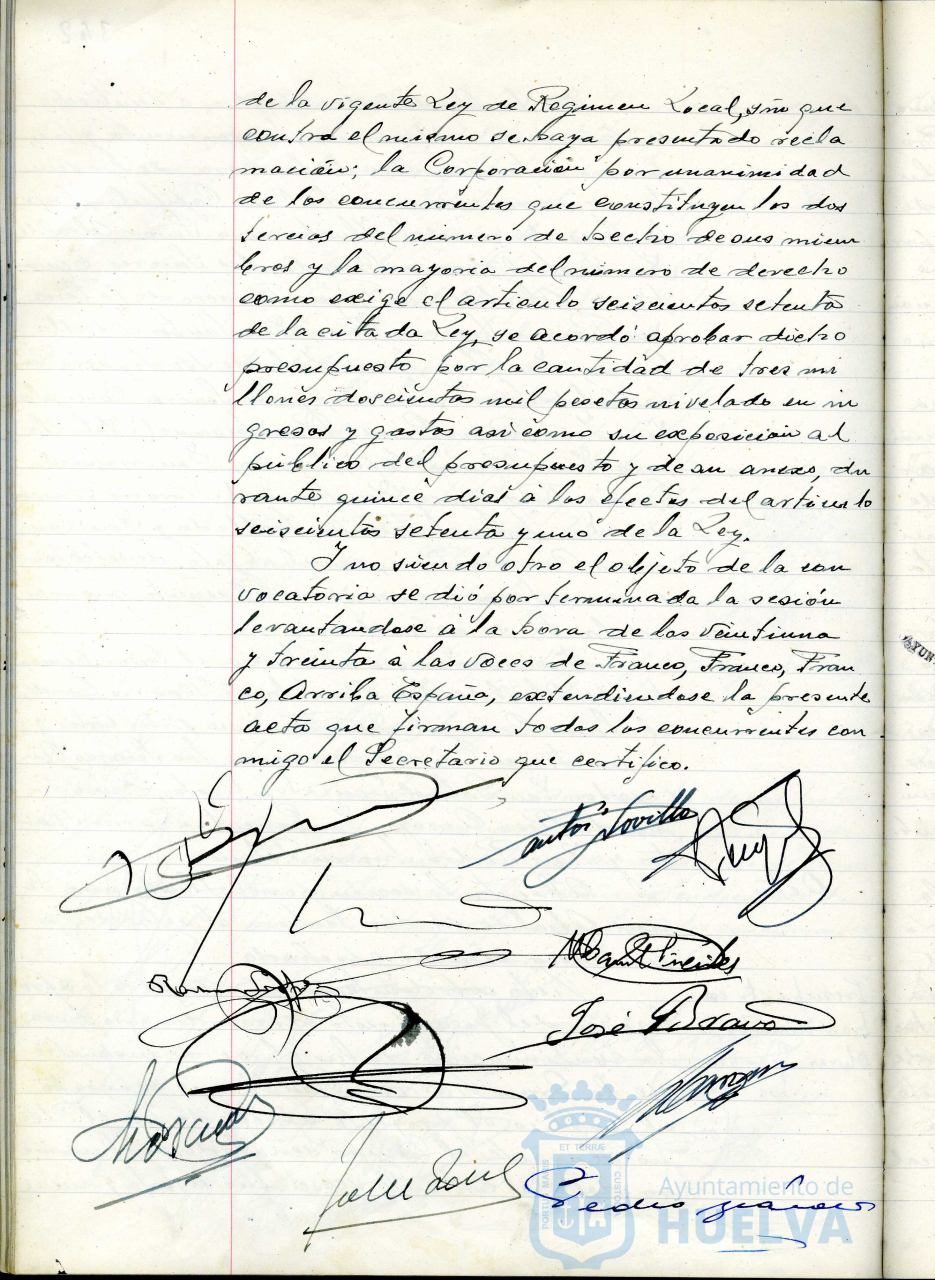 de la vigente Ley de Regimen Local, sin que
contra el mismo se haya presentado recla
mación; la Corporación por unanimidad
de los concurrentes que constituyen los dos
tercios del número de hecho de sus miem
bros y la mayoria del número de derecho
como exige el articulo seiscientos setenta
de la citada Ley, se acordó aprobar dicho
presupuesto por la cantidad de tres mi
llones doscientas mil pesetas nivelado en in
gresos y gastos asi como su exposición al
público del presupuesto y de su anexo, du
rante quince dias á los efectos del articulo
seiscientos setenta y uno de la Ley.
Y no siendo otro el objeto de la con
vocatoria se dió por terminada la sesión
levantandose á la hora de las veintiuna
y treinta á las voces de Franco, Franco, Fran
co, Arriba España, extendiendose la presente
acta que firman todos los concurrentes con
migo el Secretario que certifico.
José Bravo
Pedro
ET TERRÆ
PORTUS MARIS
CUSTODIA
Ayuntamiento de
HUELVA